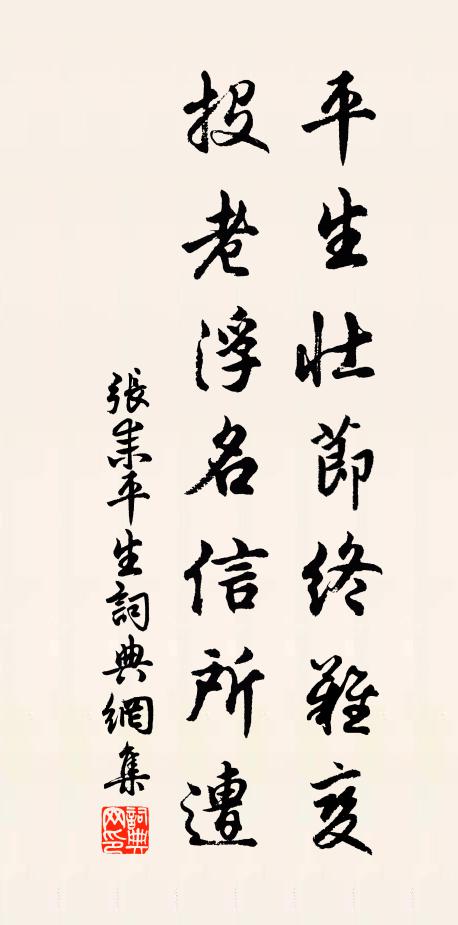 平生壮節終難變
投老浮名信所遭
張耒平生詞典網集
詞典網印